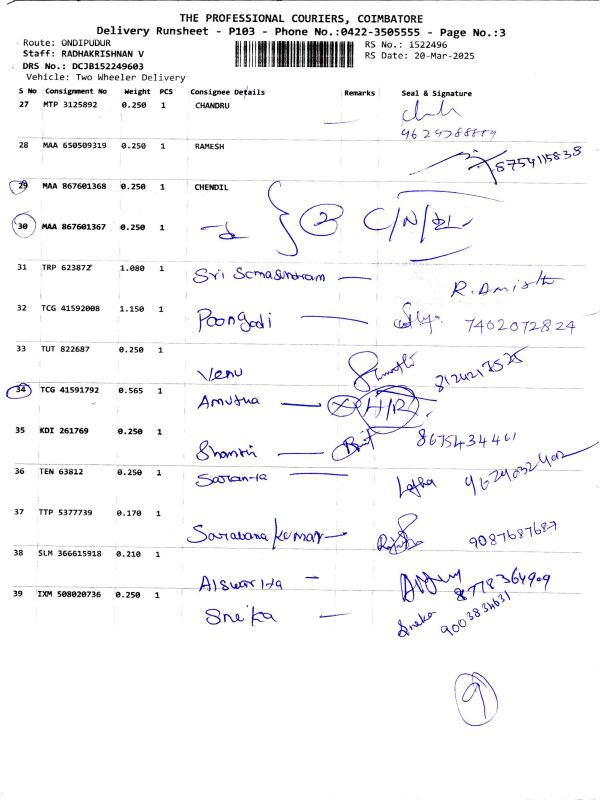 THE PROFESSIONAL COURIERS, COIMBATORE
Delivery Runsheet - P103 - Phone No.:0422-3505555 - Page No.:3
Route: ONDIPUDUR
RS No.: 1522496
Staff: RADHAKRISHNAN V
RS Date: 20-Mar-2025
DRS No.: DCJB152249603
Vehicle: Two Wheeler Delivery
S No Consignment No Weight PCS Consignee Details Remarks Seal & Signature
27 MTP 3125892 0.250 1 CHANDRU
28 MAA 650509319 0.250 1 RAMESH
8754115838
29 MAA 867601368 0.250 1 CHENDIL
30 MAA 867601367 0.250 1 2 C/N/
31 TRP 623872 1.080 1
Sri Somasundram R. Amisth
32 TCG 41592008 1.150 1
Poongodi 7402072824
33 TUT 822687 0.250 1
Venu Sumathi 8124213525
34 TCG 41591792 0.565 1
Amutha X H/R
35 KDI 261769 0.250 1
Shanthi 8675434461
36 TEN 63812 0.250 1
Saranya Latha
37 TTP 5377739 0.170 1
Saravana Kumar 9087687687
38 SLM 366615918 0.210 1
Aiswariya 8778364909
39 IXM 508020736 0.250 1
Sneka Sneka 9003834631
9